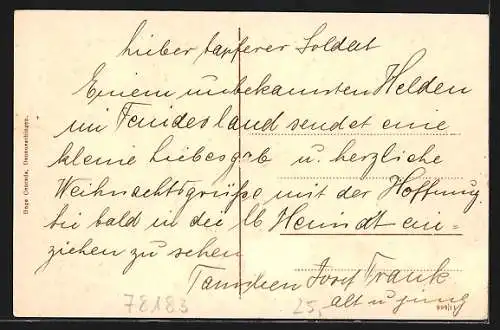 Lieber tapferer Soldat
Einem unbekannten Helden
im Feindesland sendet eine
kleine Liebesgab u. herzliche
Weihnachtsgrüße mit der Hoffnung
bald in die lb Heimat ein=
ziehen zu sehen
Familien Josef Frank
alt u jung
78183
25,-
Hugo Donaueschingen.